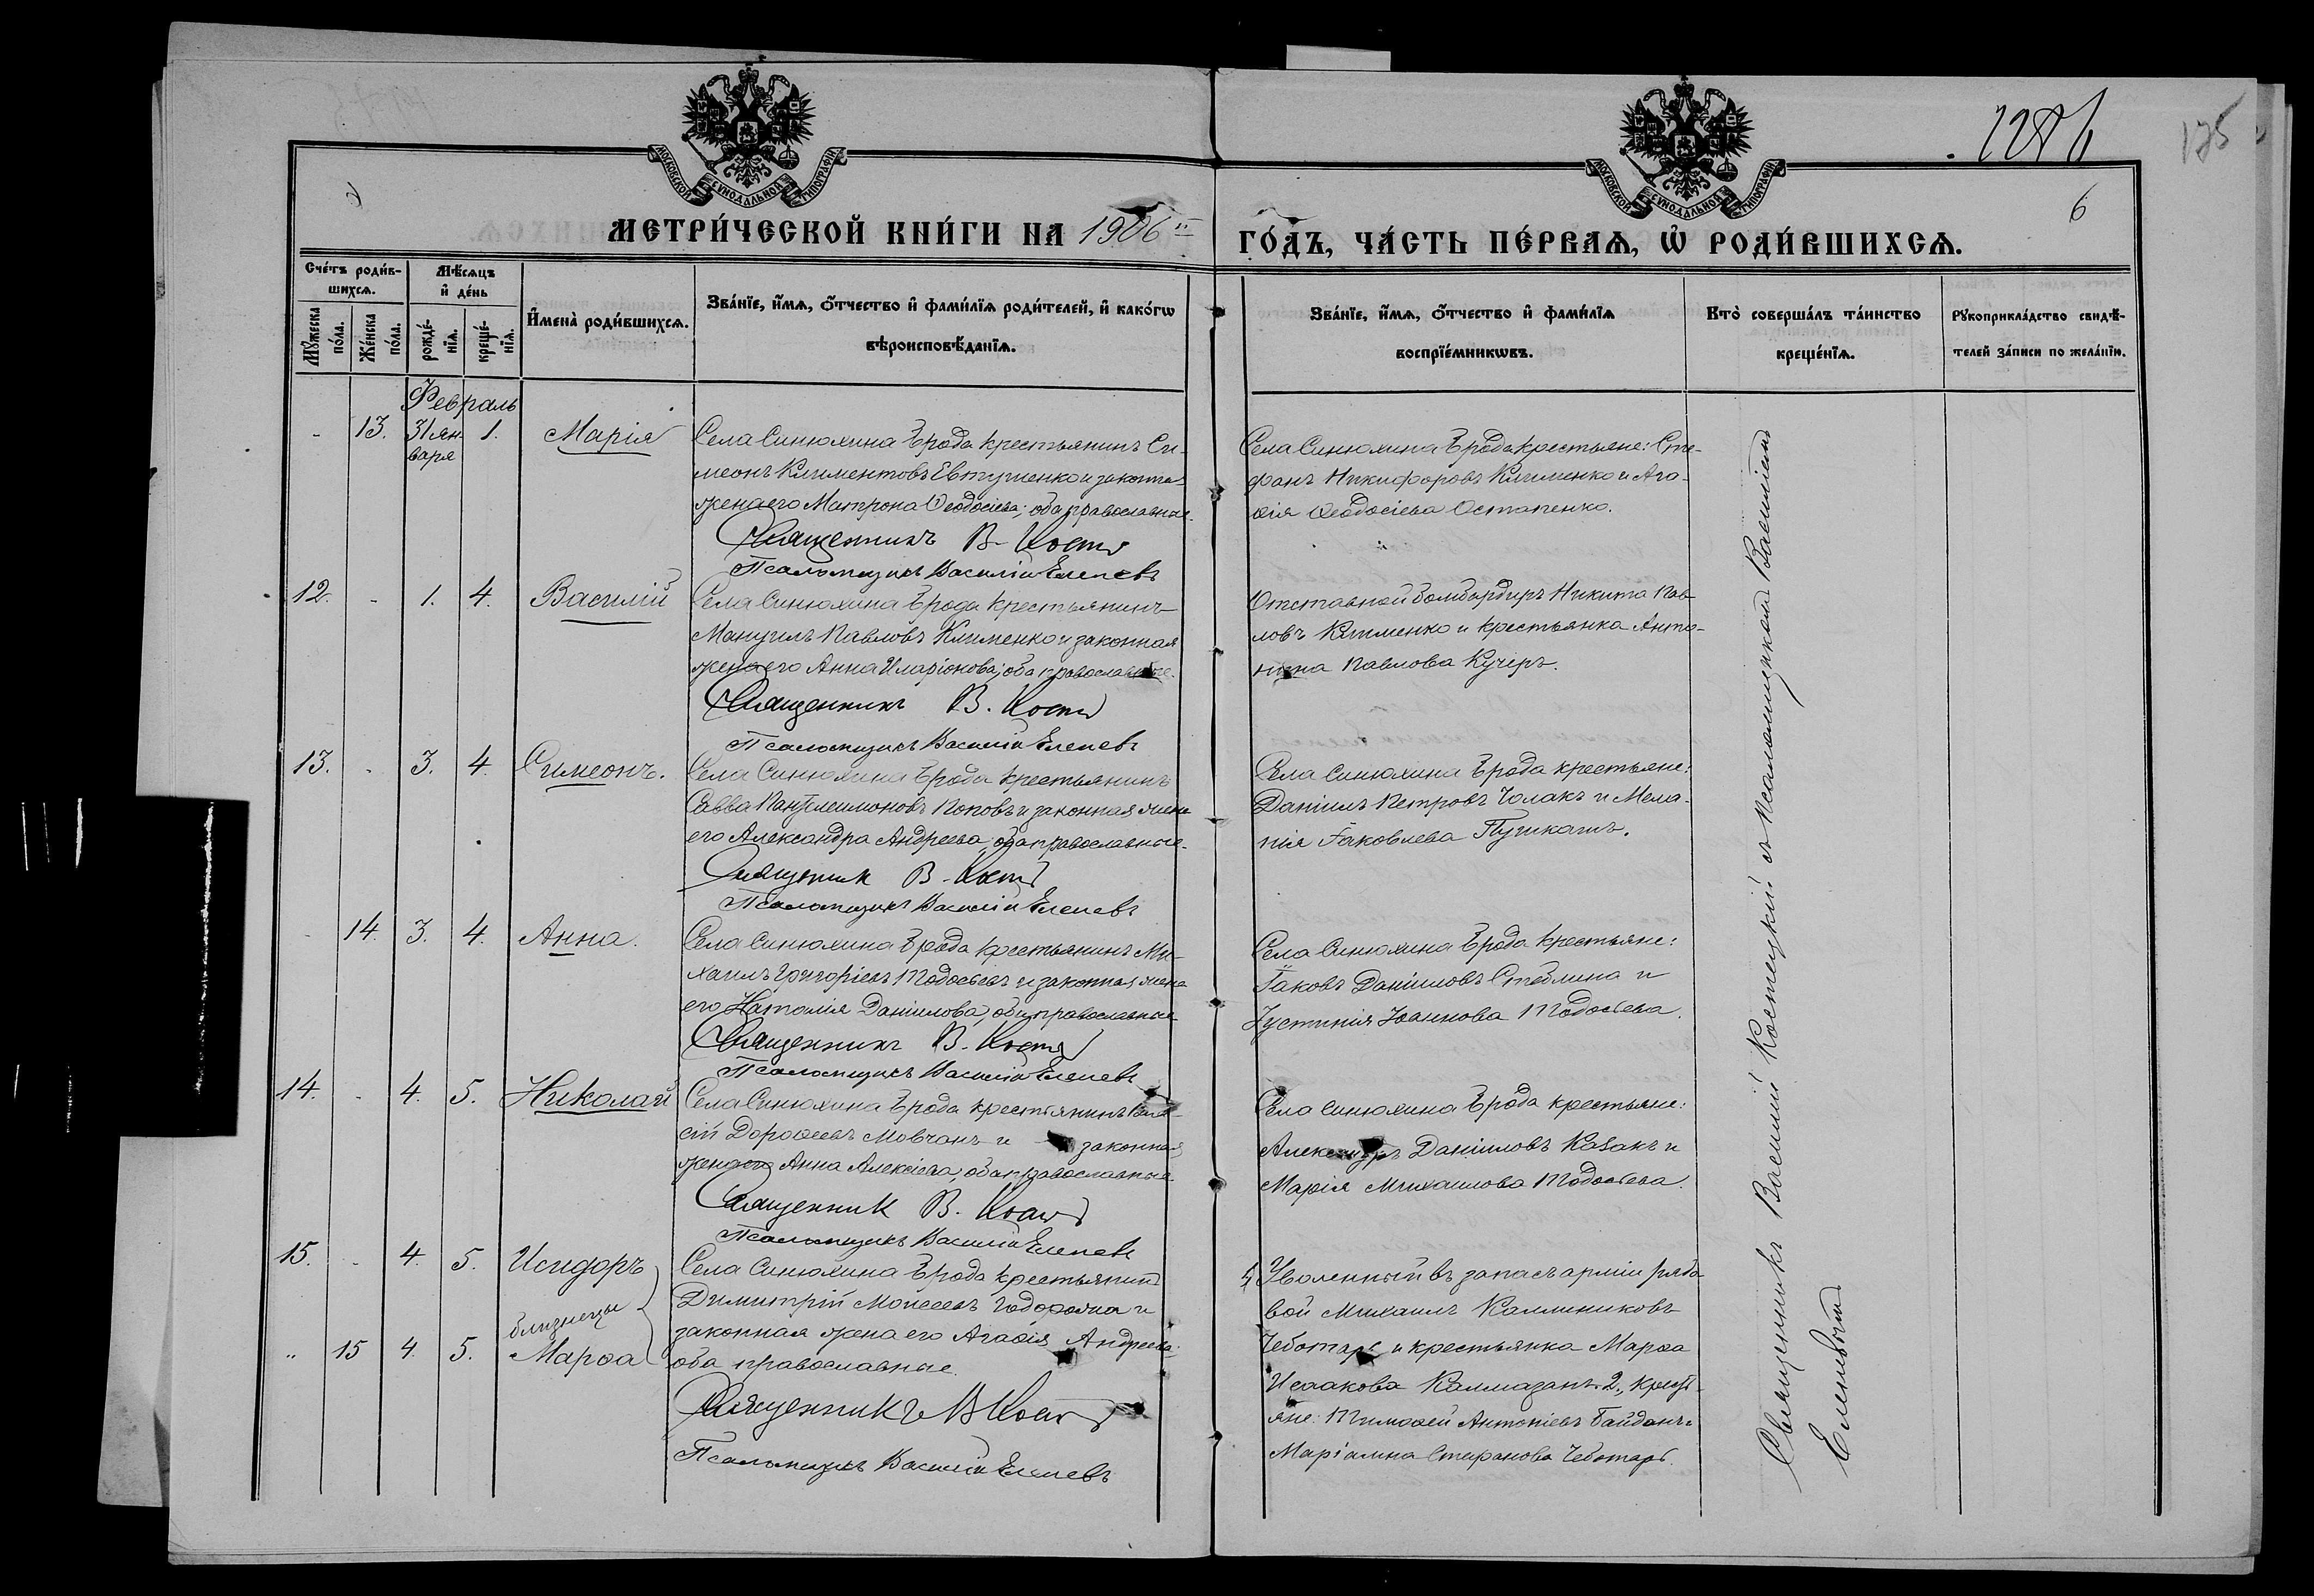 МОСКОВСКОЙ СѴНОДАЛЬНОЙ ТИПОГРАФІИ
МОСКОВСКОЙ СѴНОДАЛЬНОЙ ТИПОГРАФІИ
175
6
МЕТРИ́ЧЕСКОЙ КНИ́ГИ НА 1906й
ГО́ДЪ, ЧА́СТЬ ПЕ́РВАѦ, Ѡ҆ РОДИ́ВШИХСѦ.
Сче́тъ роди́в-
шихсѧ.
Мꙋ́жеска по́ла.
Же́нска по́ла.
Мѣ́сѧцъ
и҆ де́нь
рожде́-
нїѧ.
креще́-
нїѧ.
И҆мена̀ роди́вшихсѧ.
Зва́нїе, и҆́мѧ, ѻ҆́тчество и҆ фами́лїѧ роди́телей, и҆ како́гѡ
вѣроисповѣ́данїѧ.
Зва́нїе, и҆́мѧ, ѻ҆́тчество и҆ фами́лїѧ
воспрїе́мникѡвъ.
Кто̀ соверша́лъ та́инство
креще́нїѧ.
Рꙋкоприкла́дство свидѣ́-
телей за́писи по жела́нїю.
Февраль
- 13. 31 ян- 1. Марія
варя
Села Синюхина Брода крестьянинъ Си-
меонъ Климентовъ Евтушенко и законная
жена его Матрона Ѳеодосіева; оба православные.
Священникъ В. Кост
Псаломщикъ Василій Еленевъ
Села Синюхина Брода крестьяне: Сте-
фанъ Никифоровъ Клименко и Ага-
ѳія Ѳеодосіева Остапенко.
12. - 1. 4. Василій
Села Синюхина Брода крестьянинъ
Мануилъ Павловъ Клименко и законная
жена его Анна Иларіонова; оба православные.
Священникъ В. Кост
Псаломщикъ Василій Еленевъ
Отставной бомбардиръ Никита Пав-
ловъ Клименко и крестьянка Анто-
нина Павлова Кучеръ.
13. - 3. 4. Симеонъ.
Села Синюхина Брода крестьянинъ
Савва Пантелеимоновъ Поповъ и законная жена
его Александра Андреева; оба православные.
Священник В. Кост
Псаломщикъ Василій Еленевъ
Села Синюхина Брода крестьяне:
Даніилъ Петровъ Чолакъ и Мела-
нія Іаковлева Пушкашъ.
- 14. 3. 4. Анна.
Села Синюхина Брода крестьянинъ Ми-
хаилъ Григоріевъ Тодосьевъ и законная жена
его Наталія Даніилова; оба православные
Священникъ В. Кост
Псаломщикъ Василій Еленевъ
Села Синюхина Брода крестьяне:
Іаковъ Даніиловъ Стеблина и
Іустинія Іоаннова Тодосьева.
14. - 4. 5. Николай
Села Синюхина Брода крестьянинъ
сій Дороѳеевъ Мовчанъ и законная
жена его Анна Алексіева; оба православные
Священник В. Кост
Псаломщикъ Василій Еленевъ
Села Синюхина Брода крестьяне:
Александръ Даніиловъ Казакъ и
Марія Михаилова Тодосьева.
15. - 4. 5. Исидоръ
близнецы
" 15 4. 5. Марѳа
Села Синюхина Брода крестьянинъ
Димитрій Мойсеевъ и
законная жена его Агаѳія Андреева;
оба православные.
Священникъ В Кост
Псаломщикъ Василій Еленевъ
Уволенный въ запасъ арміи рядо
вой Михаилъ Каллиниковъ
Чеботарь и крестьянка Марѳа
Исаакова Калмазанъ. 2., крестъ-
яне: Тимоѳей Антоніевъ Байданъ и
Маріамна Стефанова Чеботарь.
Священникъ Василій Костецкій съ псаломщикомъ Василіемъ
Еленевымъ